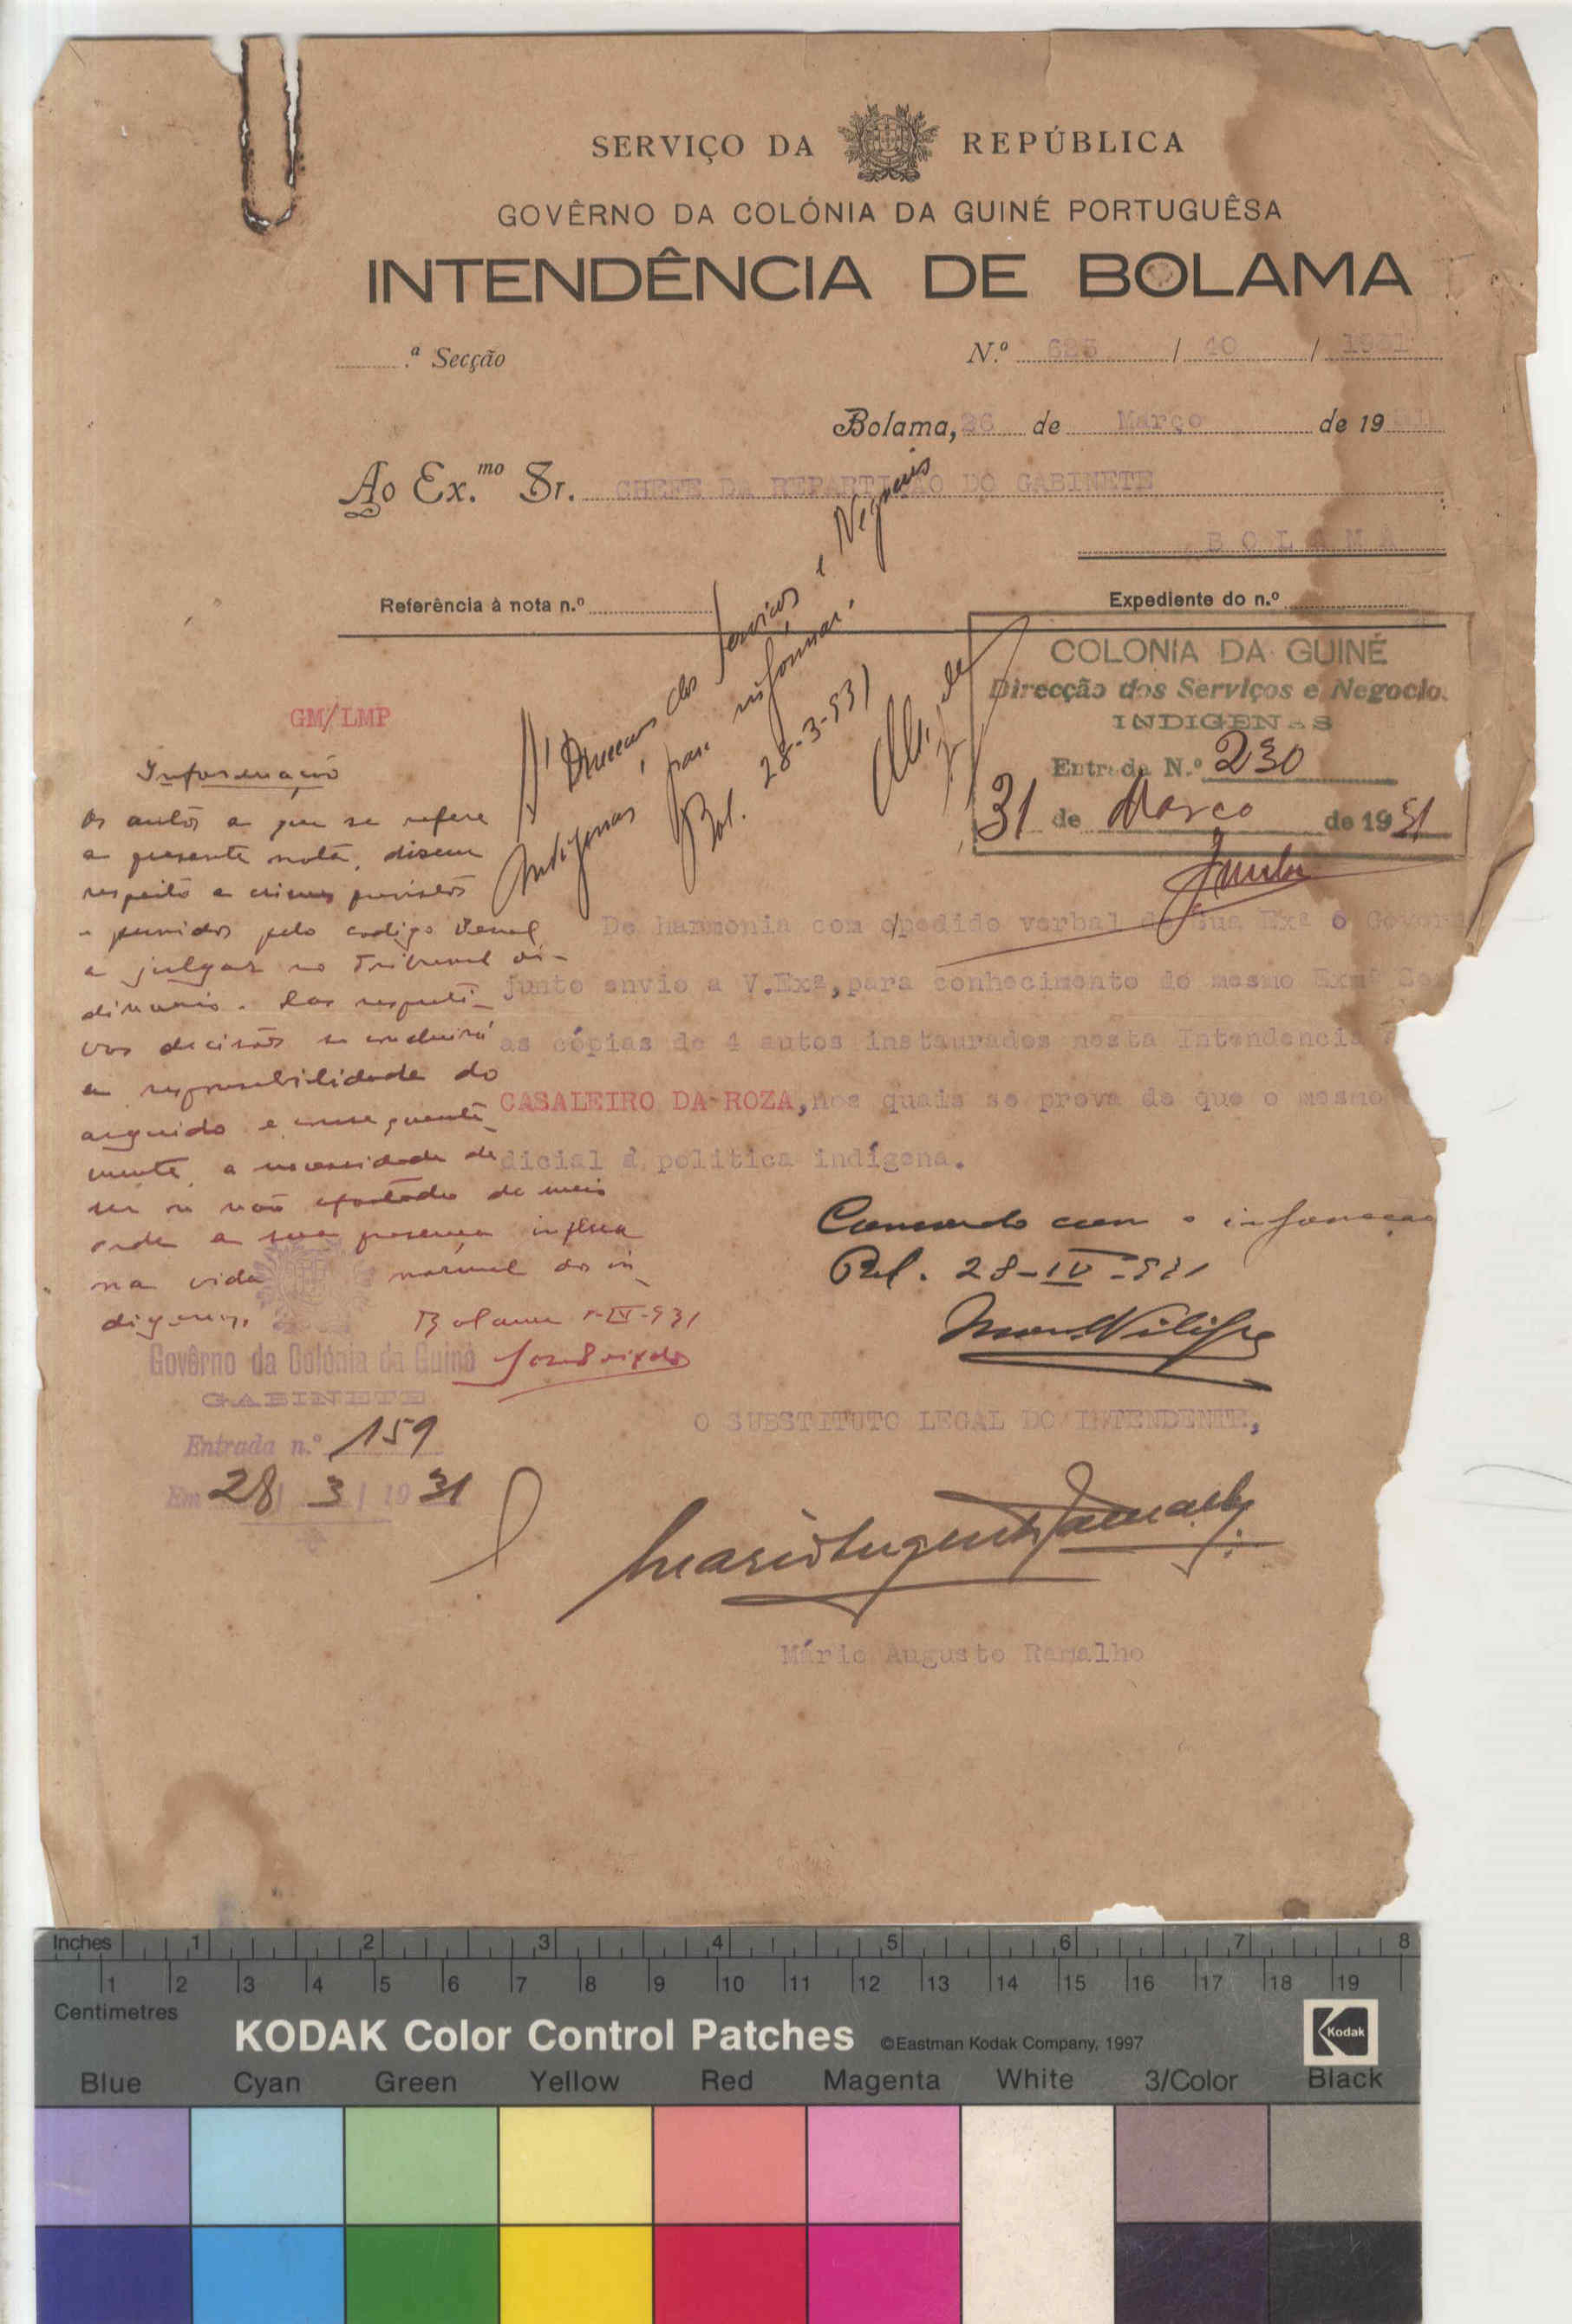 SERVIÇO DA REPÚBLICA
GOVÊRNO DA COLÓNIA DA GUINÉ PORTUGUÊSA
INTENDÊNCIA DE BOLAMA
.ª Secção
N.º 625 / 40 / 1931
Bolama, 26 de Março de 19
Ao Ex.mo Sr. CHEFE DA REPARTIÇÃO DO GABINETE
BOLAMA
Referência à nota n.º
Expediente do n.º
Á Direcção dos Serviços e Negocios
Indigenas, para informar.
Bol. 28-3-931
COLONIA DA GUINÉ
Direcção dos Serviços e Negocio.
INDIGENAS
Entrada N.º 230
31 de Março de 1931
GM/LMP
Informação
Os autos a que se refere
a presente nota, dizem
respeito a crimes previstos
e punidos pelo codigo Penal
a julgar no Tribunal or-
dinario. Das respecti-
vas decisões se concluirá
a responsabilidade do
arguido e consequente-
mente, a necessidade de
ser ou não afastado do meio
onde a sua presença influa
na vida normal dos in-
digenas.
Bolama 1-IV-931
De harmonia com o pedido verbal de Sua Exª o Govern
junto envio a V.Exª, para conhecimento do mesmo Exmº Se
as cópias de 4 autos instaurados nesta Intendencia
CASALEIRO DA ROZA, nos quais se prova de que o mesmo
dicial á politica indígena.
Concordo com a informação
Bol. 28-IV-931
Govêrno da Colónia da Guiné
GABINETE
Entrada n.º 159
Em 28 / 3 / 1931
O SUBSTITUTO LEGAL DO INTENDENTE,
Mário Augusto Ramalho
Inches 1 2 3 4 5 6 7 8
1 2 3 4 5 6 7 8 9 10 11 12 13 14 15 16 17 18 19
Centimetres
KODAK Color Control Patches ©Eastman Kodak Company, 1997 Kodak
Blue Cyan Green Yellow Red Magenta White 3/Color Black